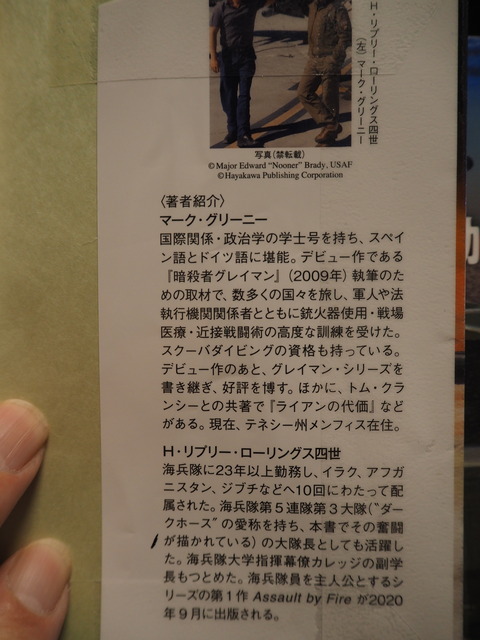 H・リプリー・ローリングス四世
（左）マーク・グリーニー
写真（禁転載）
© Major Edward “Nooner” Brady, USAF
© Hayakawa Publishing Corporation
〈著者紹介〉
マーク・グリーニー
国際関係・政治学の学士号を持ち、スペイ
ン語とドイツ語に堪能。デビュー作である
『暗殺者グレイマン』（2009年）執筆のた
めの取材で、数多くの国々を旅し、軍人や法
執行機関関係者とともに銃火器使用・戦場
医療・近接戦闘術の高度な訓練を受けた。
スクーバダイビングの資格も持っている。
デビュー作のあと、グレイマン・シリーズを
書き継ぎ、好評を博す。ほかに、トム・クラ
ンシーとの共著で『ライアンの代価』など
がある。現在、テネシー州メンフィス在住。
H・リプリー・ローリングス四世
海兵隊に23年以上勤務し、イラク、アフガ
ニスタン、ジブチなどへ10回にわたって配
属された。海兵隊第５連隊第３大隊（〝ダー
クホース〟の愛称を持ち、本書でその奮闘
が描かれている）の大隊長としても活躍し
た。海兵隊大学指揮幕僚カレッジの副学
長もつとめた。海兵隊員を主人公とするシ
リーズの第１作 Assault by Fire が2020
年９月に出版される。